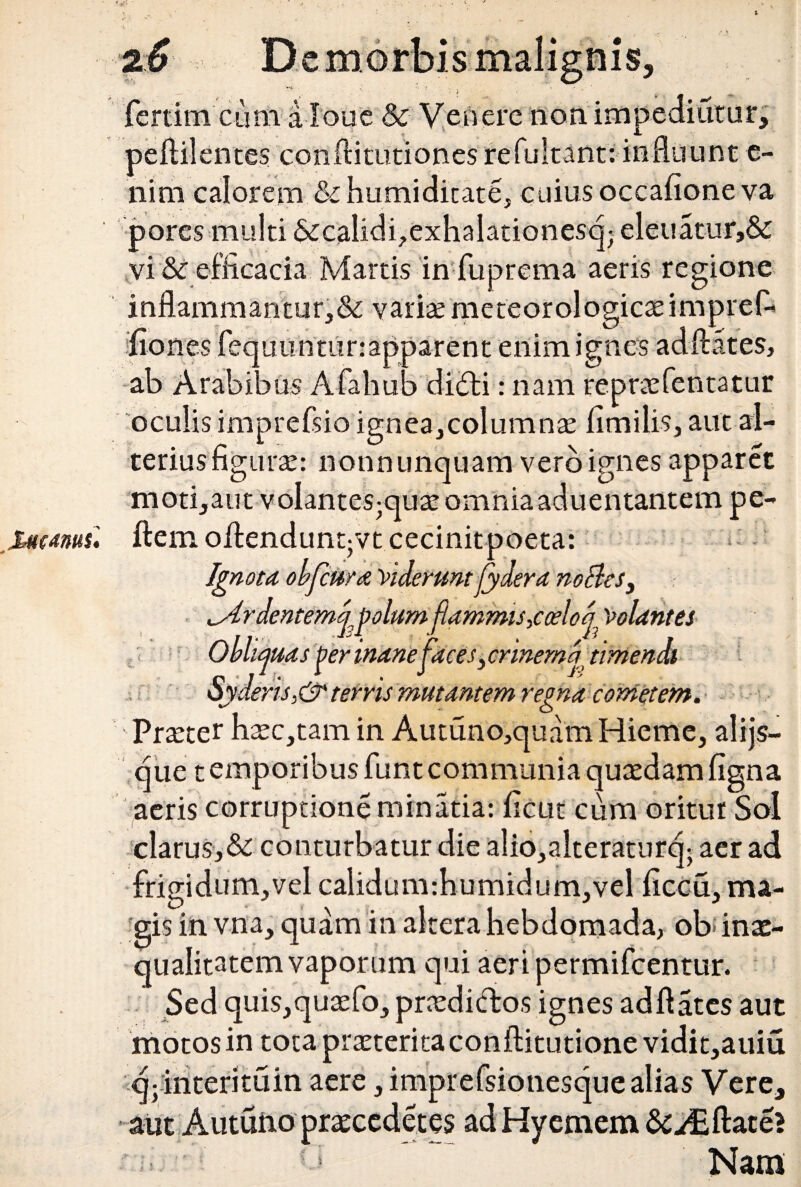 26 De morbis malignis,
ſertim cùm à Ioue & Venere non impediũtur,
peſtilentes conſtitutiones reſultant: influunt e-
nim calorem & humiditatẽ, cuius occaſione va
pores multi &calidi,exhalationesq; eleuãtur,&
vi & efficacia Martis in ſuprema aeris regione
inflammantur,& variæ meteorologicæ impreſ-
ſiones ſequuntur:apparent enim ignes adſtãtes,
ab Arabibus Aſahub dicti : nam repræſentatur
oculis impreſsio ignea,columnæ ſimilis, aut al-
terius figuræ: nonnunquam verò ignes apparẽt
moti,aut volantes;quæ omnia aduentantem pe-
Lucanus. ſtem oſtendunt;vt cecinit poeta:
Ignota obſcuræ viderunt ſydera noctes,
Ardentemq̃ polum flammis,cœloq̃ volantes
Obliquas per inane faces,crinemq̃ timendi
Syderis,& terris mutantem regna cometem.
Præter hæc,tam in Autũno,quàm Hieme, alijs-
que temporibus ſunt communia quædam ſigna
aeris corruptionẽ minãtia: ſicut cùm oritur Sol
clarus,& conturbatur die alio,alteraturq; aer ad
frigidum,vel calidum:humidum,vel ſiccũ, ma-
gis in vna, quàm in altera hebdomada, ob inæ-
qualitatem vaporum qui aeri permiſcentur.
Sed quis,quæſo, prædictos ignes adſtãtes aut
motos in tota præterita conſtitutione vidit,auiũ
q; interitũ in aere , impreſsionesque alias Vere,
aut Autũno præcedẽtes ad Hyemem & Æſtatẽ?
Nam